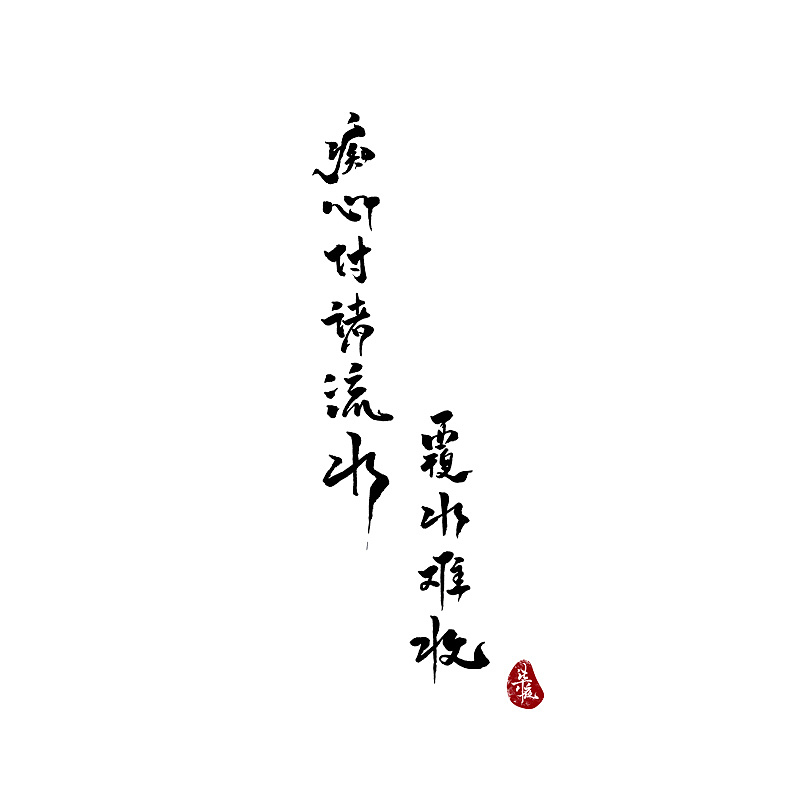 痴心付諸流水
覆水难收